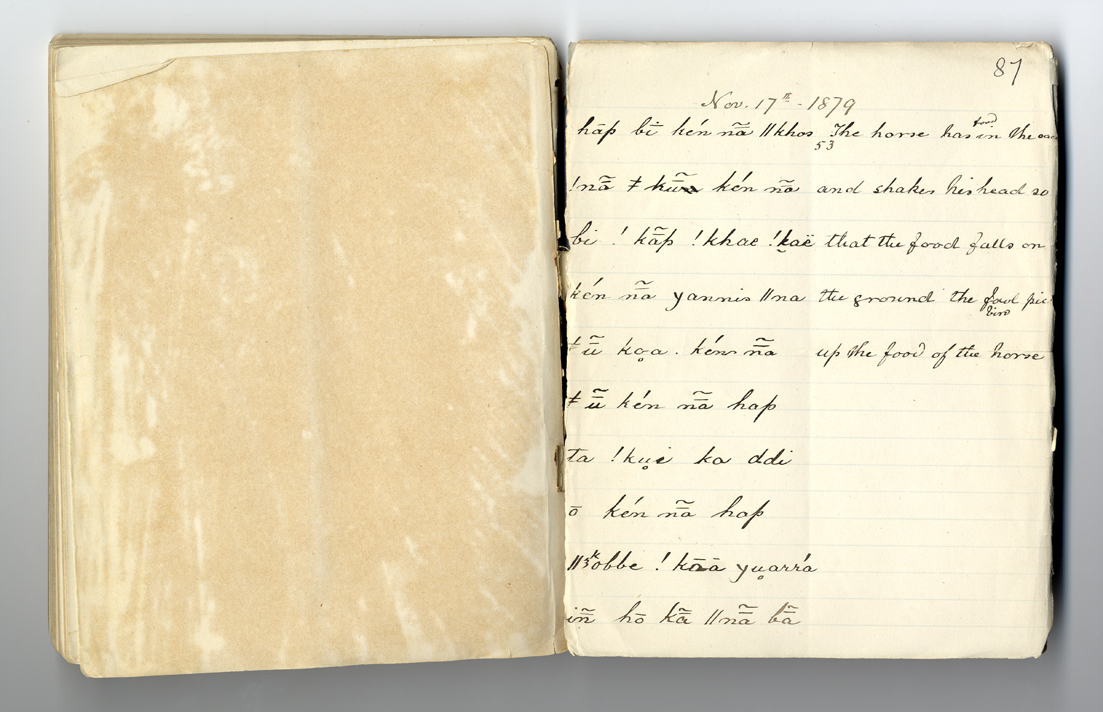 87
Nov. 17th - 1879
hāp bī kén nã̄ ǁkhos The horse has food in the
53
!nã̄ ǂ kén nã̄ and shakes his head so
bi ! kã̄p !khae !kaë that the food falls on
kén nã̄ yannis ǁna the ground the fowl
bird
ǂũ̄ ko̥a . kéns nã̄ up the food of the horse
ǂ ũ̄ kén nã̄ hap
ta !ku̥i ka ddi
ō kén nã̄ hap
ǁ obbe ! kāā yu̥arrá
iñ̄ hō kã̄ ǁnã̄ bã̄